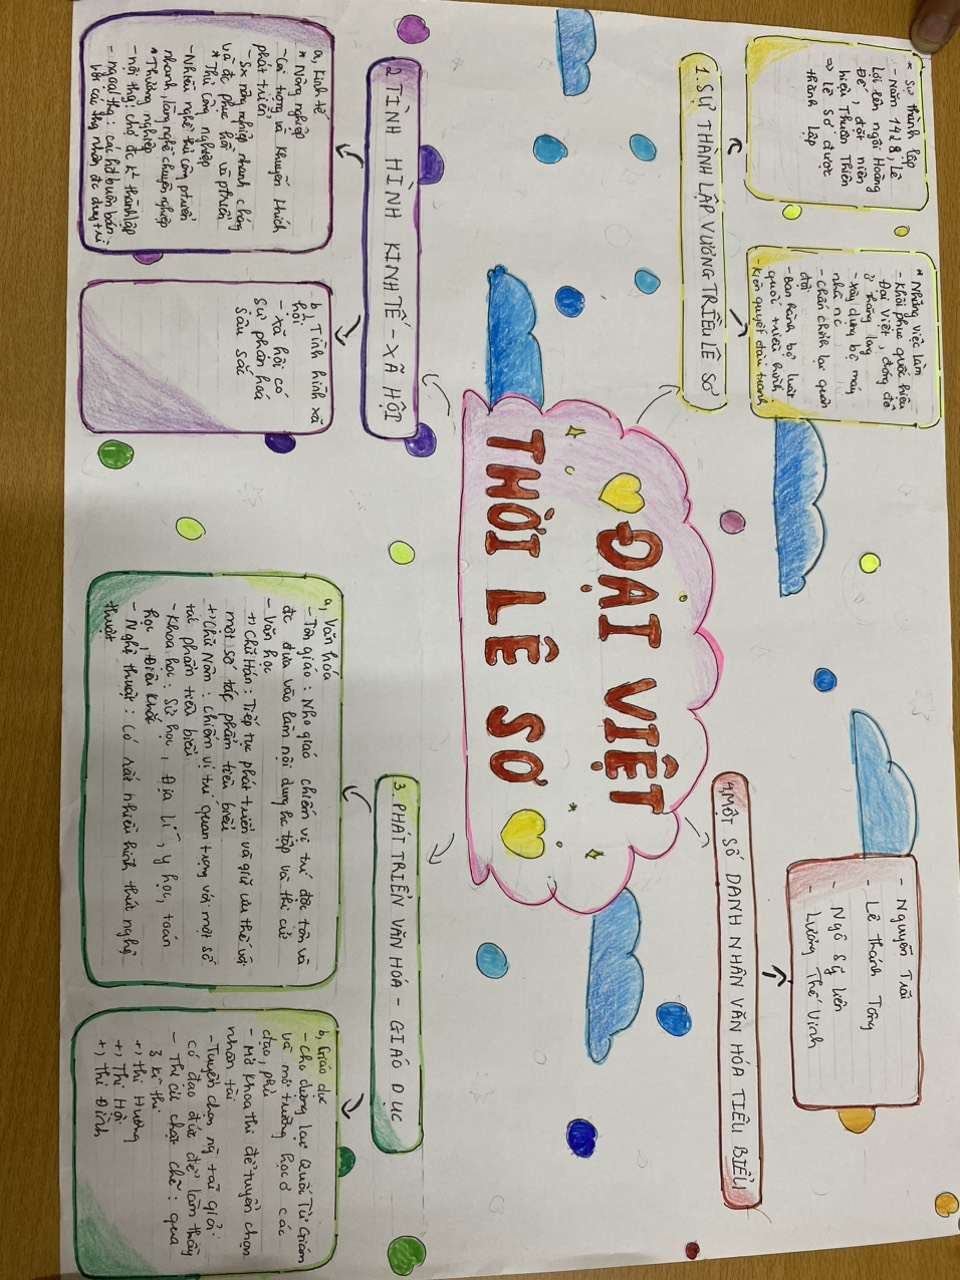 ĐẠI VIỆT
THỜI LÊ SƠ
1. SỰ THÀNH LẬP VƯƠNG TRIỀU LÊ SƠ
* Sự thành lập
- Năm 1428, Lê
Lợi lên ngôi Hoàng
Đế, đặt niên
hiệu Thuận Thiên
=> Lê Sơ được
thành lập
* Những việc làm
- Khôi phục quốc hiệu
Đại Việt, đóng đô
ở Thăng Long
- Xây dựng bộ máy
nhà nc
- Chấn chỉnh lại quân
đội
- Ban hành bộ luật
quốc triều hình
- Kiên quyết đấu tranh
2. TÌNH HÌNH KINH TẾ - XÃ HỘI
a, Kinh tế
* Nông nghiệp
- Coi trọng và khuyến khích
phát triển
- Sx nông nghiệp nhanh chóng
và đc phục hồi và ptriển
* Thủ công nghiệp
- Nhiều nghề thủ công ptriển
nhanh, làng nghề chuyên nghiệp
* Thương nghiệp
- nội thg: chợ đc k thành lập
- ngoại thg: các hđ buôn bán
với các thg nhân đc duy trì
b, Tình hình xã
hội
- xã hội có
sự phân hóa
sâu sắc
3. PHÁT TRIỂN VĂN HÓA - GIÁO DỤC
a, Văn hóa
- Tôn giáo: Nho giáo chiếm vị trí độc tôn và
đc đưa vào làm nội dung học tập và thi cử
- Văn học
+) Chữ Hán: Tiếp tục phát triển và giữ ưu thế với
một số tác phẩm tiêu biểu
+) Chữ Nôm: chiếm vị trí quan trọng với một số
tác phẩm tiêu biểu
- Khoa học: Sử học, Địa lí, y học, toán
học, Điêu khắc
- Nghệ thuật: Có rất nhiều hình thức nghệ
thuật
b, Giáo dục
- Cho dựng lại Quốc Tử Giám
và mở trường học ở các
đạo, phủ
- Mở khoa thi để tuyển chọn
nhân tài
- Tuyển chọn ng tài giỏi
có đạo đức để làm thầy
- Thi cử chặt chẽ: qua
3 kì thi
+) Thi Hương
+) Thi Hội
+) Thi Đình
4. MỘT SỐ DANH NHÂN VĂN HÓA TIÊU BIỂU
- Nguyễn Trãi
- Lê Thánh Tông
- Ngô Sỹ Liên
- Lương Thế Vinh